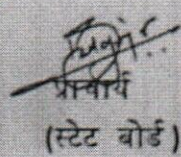 प्राचार्य
(स्टेट बोर्ड)